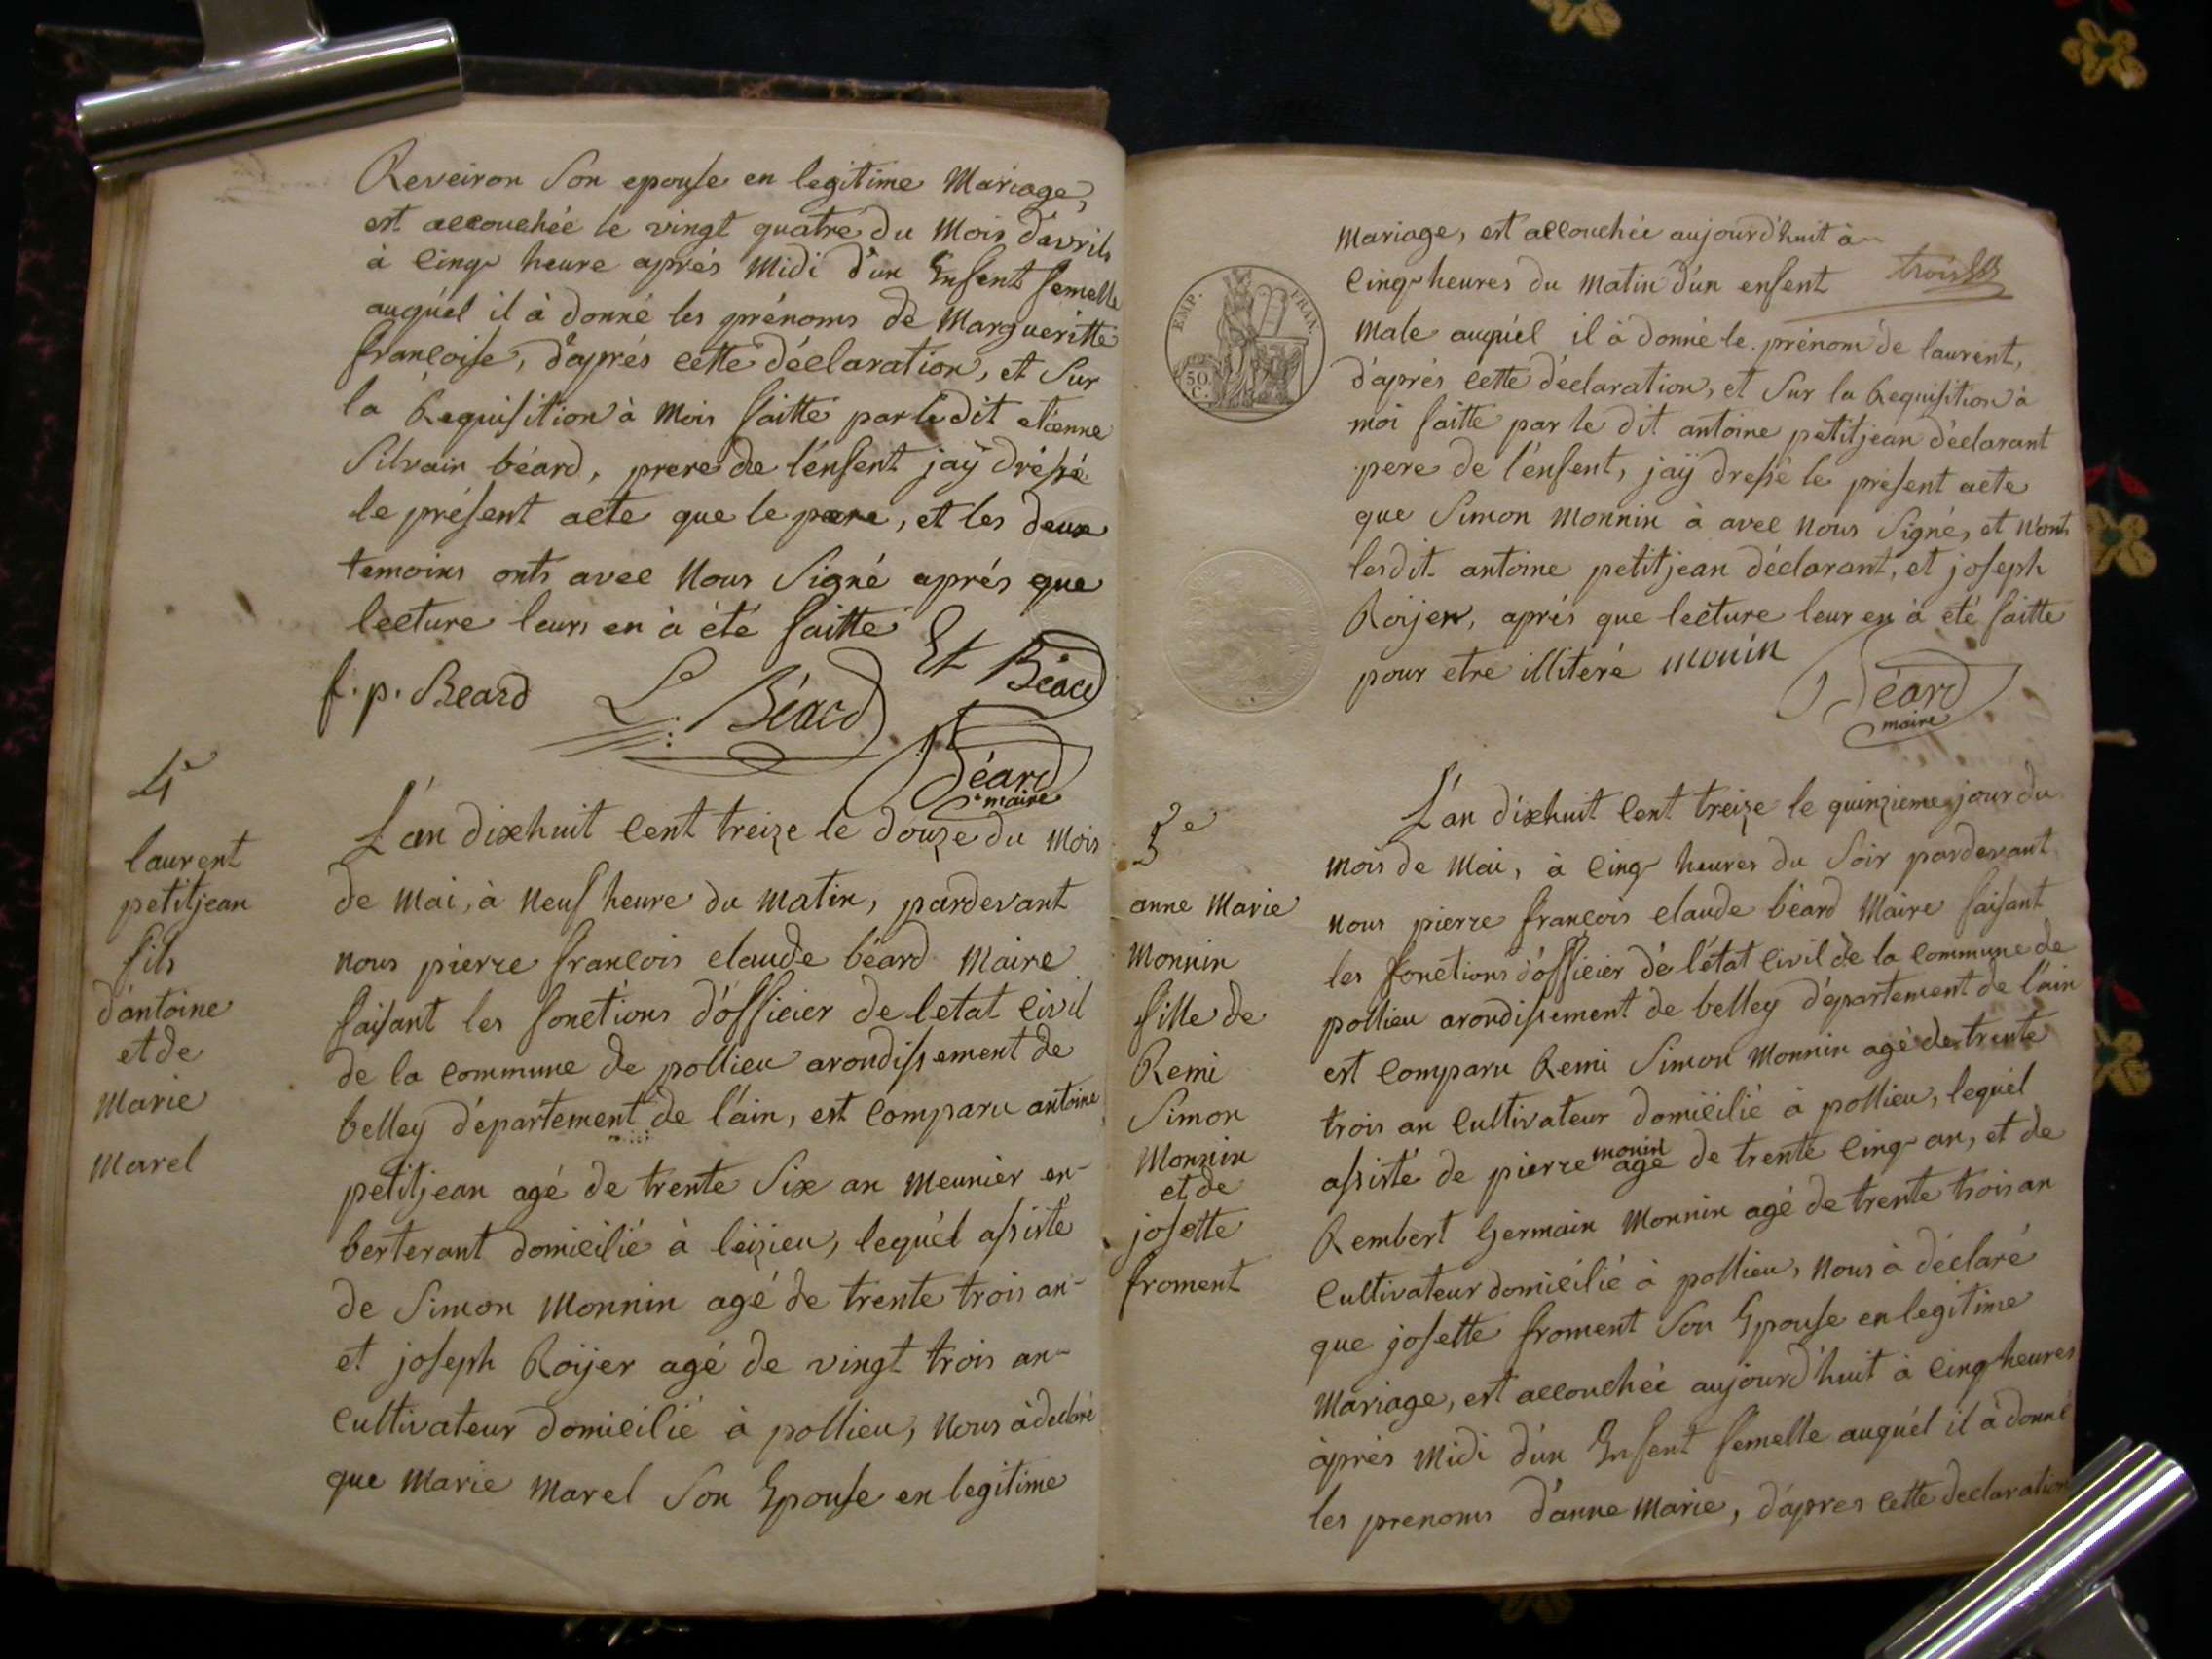 Reveiron Son epouse en legitime Mariage,
est accouchée le vingt quatre du Mois d'avril,
à cinq heure aprés Midi d'un Enfent femelle
auquél il à donné les prénoms de Margueritte
françoise, d'aprés cette déclaration, et Sur
la Requisition à Moi faitte par le dit etienne
Silvain béard, prere de l'enfent jaÿ dréssé
le présent acte que le pere, et les deux
temoins onts avec Nous Signé aprés que
lecture leurs en à été faitte
f. p. Beard
L. Béard
Et Béard
Béard
maire
4e
laurent
petitjean
fils
d'antoine
et de
Marie
Marel
L'an dixhuit cent treize le douze du Mois
de Mai, à Neuf heure du Matin, pardevant
nous pierre françois claude béard Maire
faisant les fonctions d'officier de letat civil
de la commune de pollieu arondissement de
belley département de l'ain, est comparu antoine
petitjean agé de trente Six an Meunier en
berterant domicilié à léizieu, lequél assisté
de Simon Monnin agé de trente trois an
et joseph Roijer agé de vingt trois an
cultivateur domicilié à pollieu, Nous à declaré
que Marie Marel Son Epouse en legitime
Mariage, est accouchée aujourd'huit à
cinq heures du Matin d'un enfent
trois
EMP. FRAN.
50.
C.
Male auquél il à donné le prénom de laurent,
d'aprés cette déclaration, et Sur la Requisition à
moi faitte par le dit antoine petitjean déclarant
pere de l'énfent, jaÿ dressé le présent acte
que Simon Monnin à avec Nous Signé, et Nonts
lesdit antoine petitjean déclarant, et joseph
Roijer, aprés que lecture leur en à eté faitte
pour etre illiteré monin
Béard
maire
5e
anne Marie
Monnin
fille de
Remi
Simon
Monnin
et de
josette
froment
L'an dixhuit cent treize le quinzieme jour du
mois de Mai, à cinq heures du Soir pardevant
nous pierre françois claude béard Maire faisant
les fonctions d'officier dé l'état civil de la commune de
pollieu arondissement de belley département de l'ain
est comparu Remi Simon Monnin agé de trente
trois an cultivateur domicilié à pollieu, lequél
monin
assisté de pierre agé de trente cinq an, et de
Rembert Germain Monnin agé de trente trois an
cultivateur domicilié à pollieu, Nous à déclaré
que josette froment Son Epouse en legitime
Mariage, est accouchée aujourd'huit à cinq heures
àprés Midi d'un Enfent femelle auquél il à donné
les prenoms d'anne Marie, d'apres cette declaration